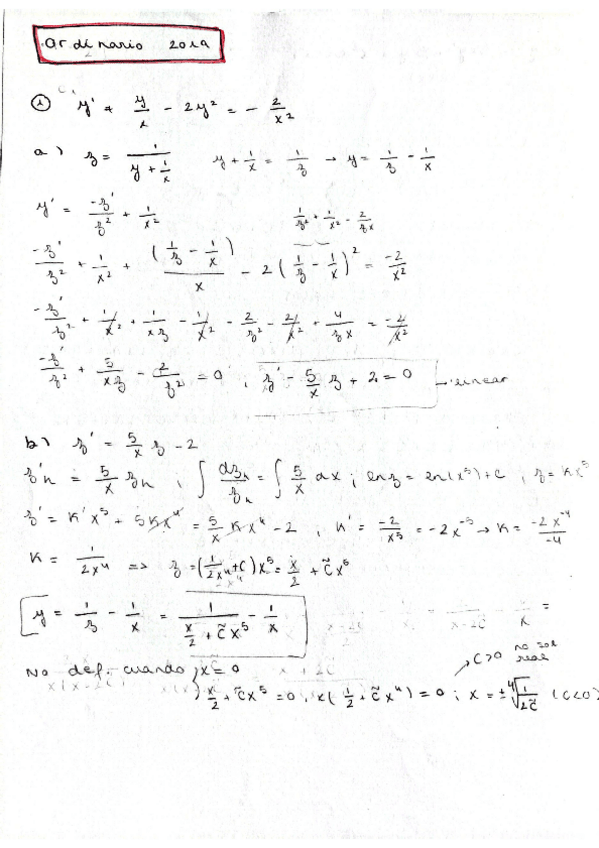 ordinario 2019
① y' + y/x - 2y² = - 2/x²
a) z = 1/(y + 1/x)   y + 1/x = 1/z → y = 1/z - 1/x
y' = -z'/z² + 1/x²   1/z² + 1/x² - 2/zx
-z'/z² + 1/x² + (1/z - 1/x)/x - 2(1/z - 1/x)² = -2/x²
-z'/z² + 1/x² + 1/xz - 1/x² - 2/z² - 2/x² + 4/zx = -2/x²
-z'/z² + 5/xz - 2/z² = 0 ; z' - 5/x z + 2 = 0 → linear
b) z' = 5/x z - 2
z'h = 5/x zh ; ∫ dzh/zh = ∫ 5/x dx ; ln z = ln(x⁵) + c ; z = Kx⁵
z' = K'x⁵ + 5Kx⁴ = 5/x K x⁴ - 2 ; K' = -2/x⁵ = -2x⁻⁵ → K = -2x⁻⁴/-4
K = 1/2x⁴ ⇒ z = (1/2x⁴ + c)x⁵ = x/2 + c̃x⁵
y = 1/z - 1/x = 1/(x/2 + c̃x⁵) - 1/x
No def. cuando ; x = 0
c>0 no sol real
x/2 + c̃x⁵ = 0 ; x(1/2 + c̃x⁴) = 0 ; x = ±⁴√(1/2c̃) (c<0)